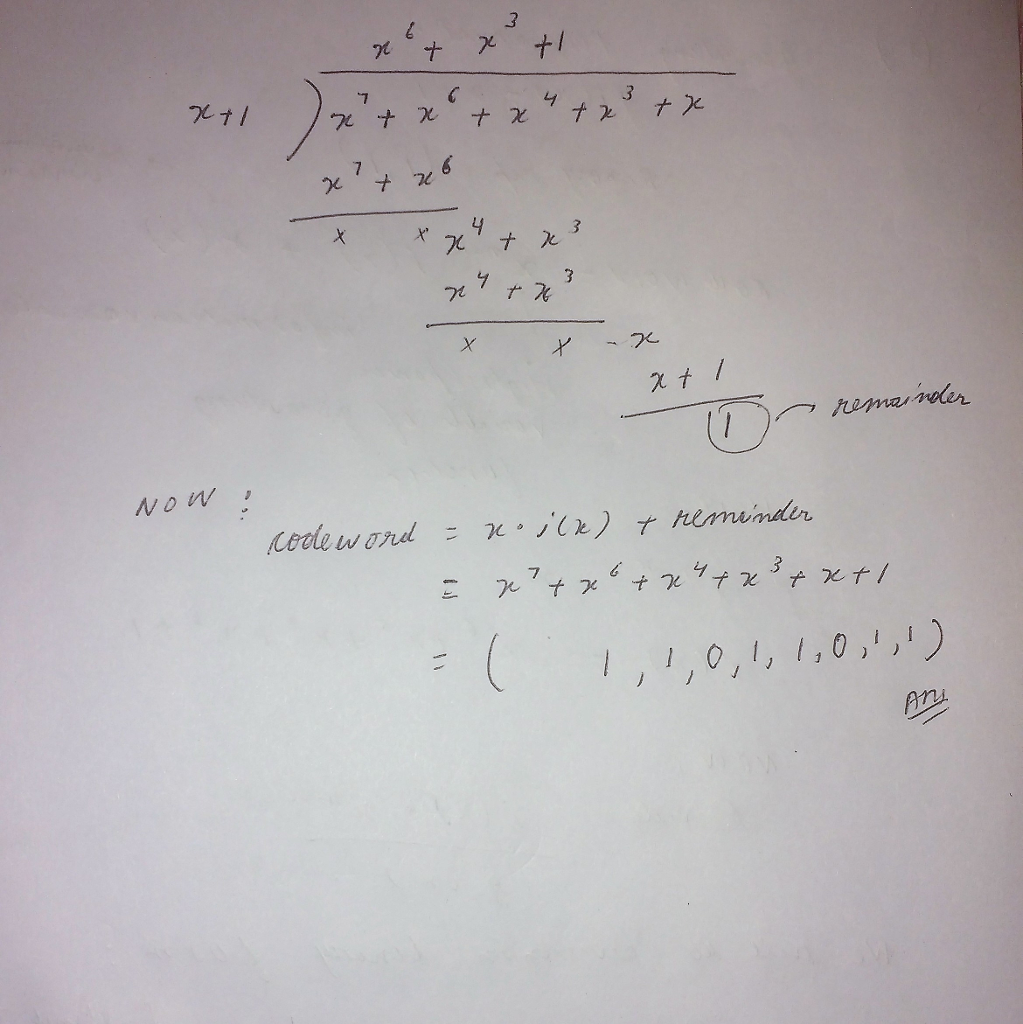 x⁶ + x³ + 1
x+1 ) x⁷ + x⁶ + x⁴ + x³ + x
x⁷ + x⁶
x x x⁴ + x³
x⁴ + x³
x x - x
x + 1
1 → remainder
NOW :
codeword = x · i(x) + remainder
= x⁷ + x⁶ + x⁴ + x³ + x + 1
= ( 1, 1, 0, 1, 1, 0, 1, 1)
Ans